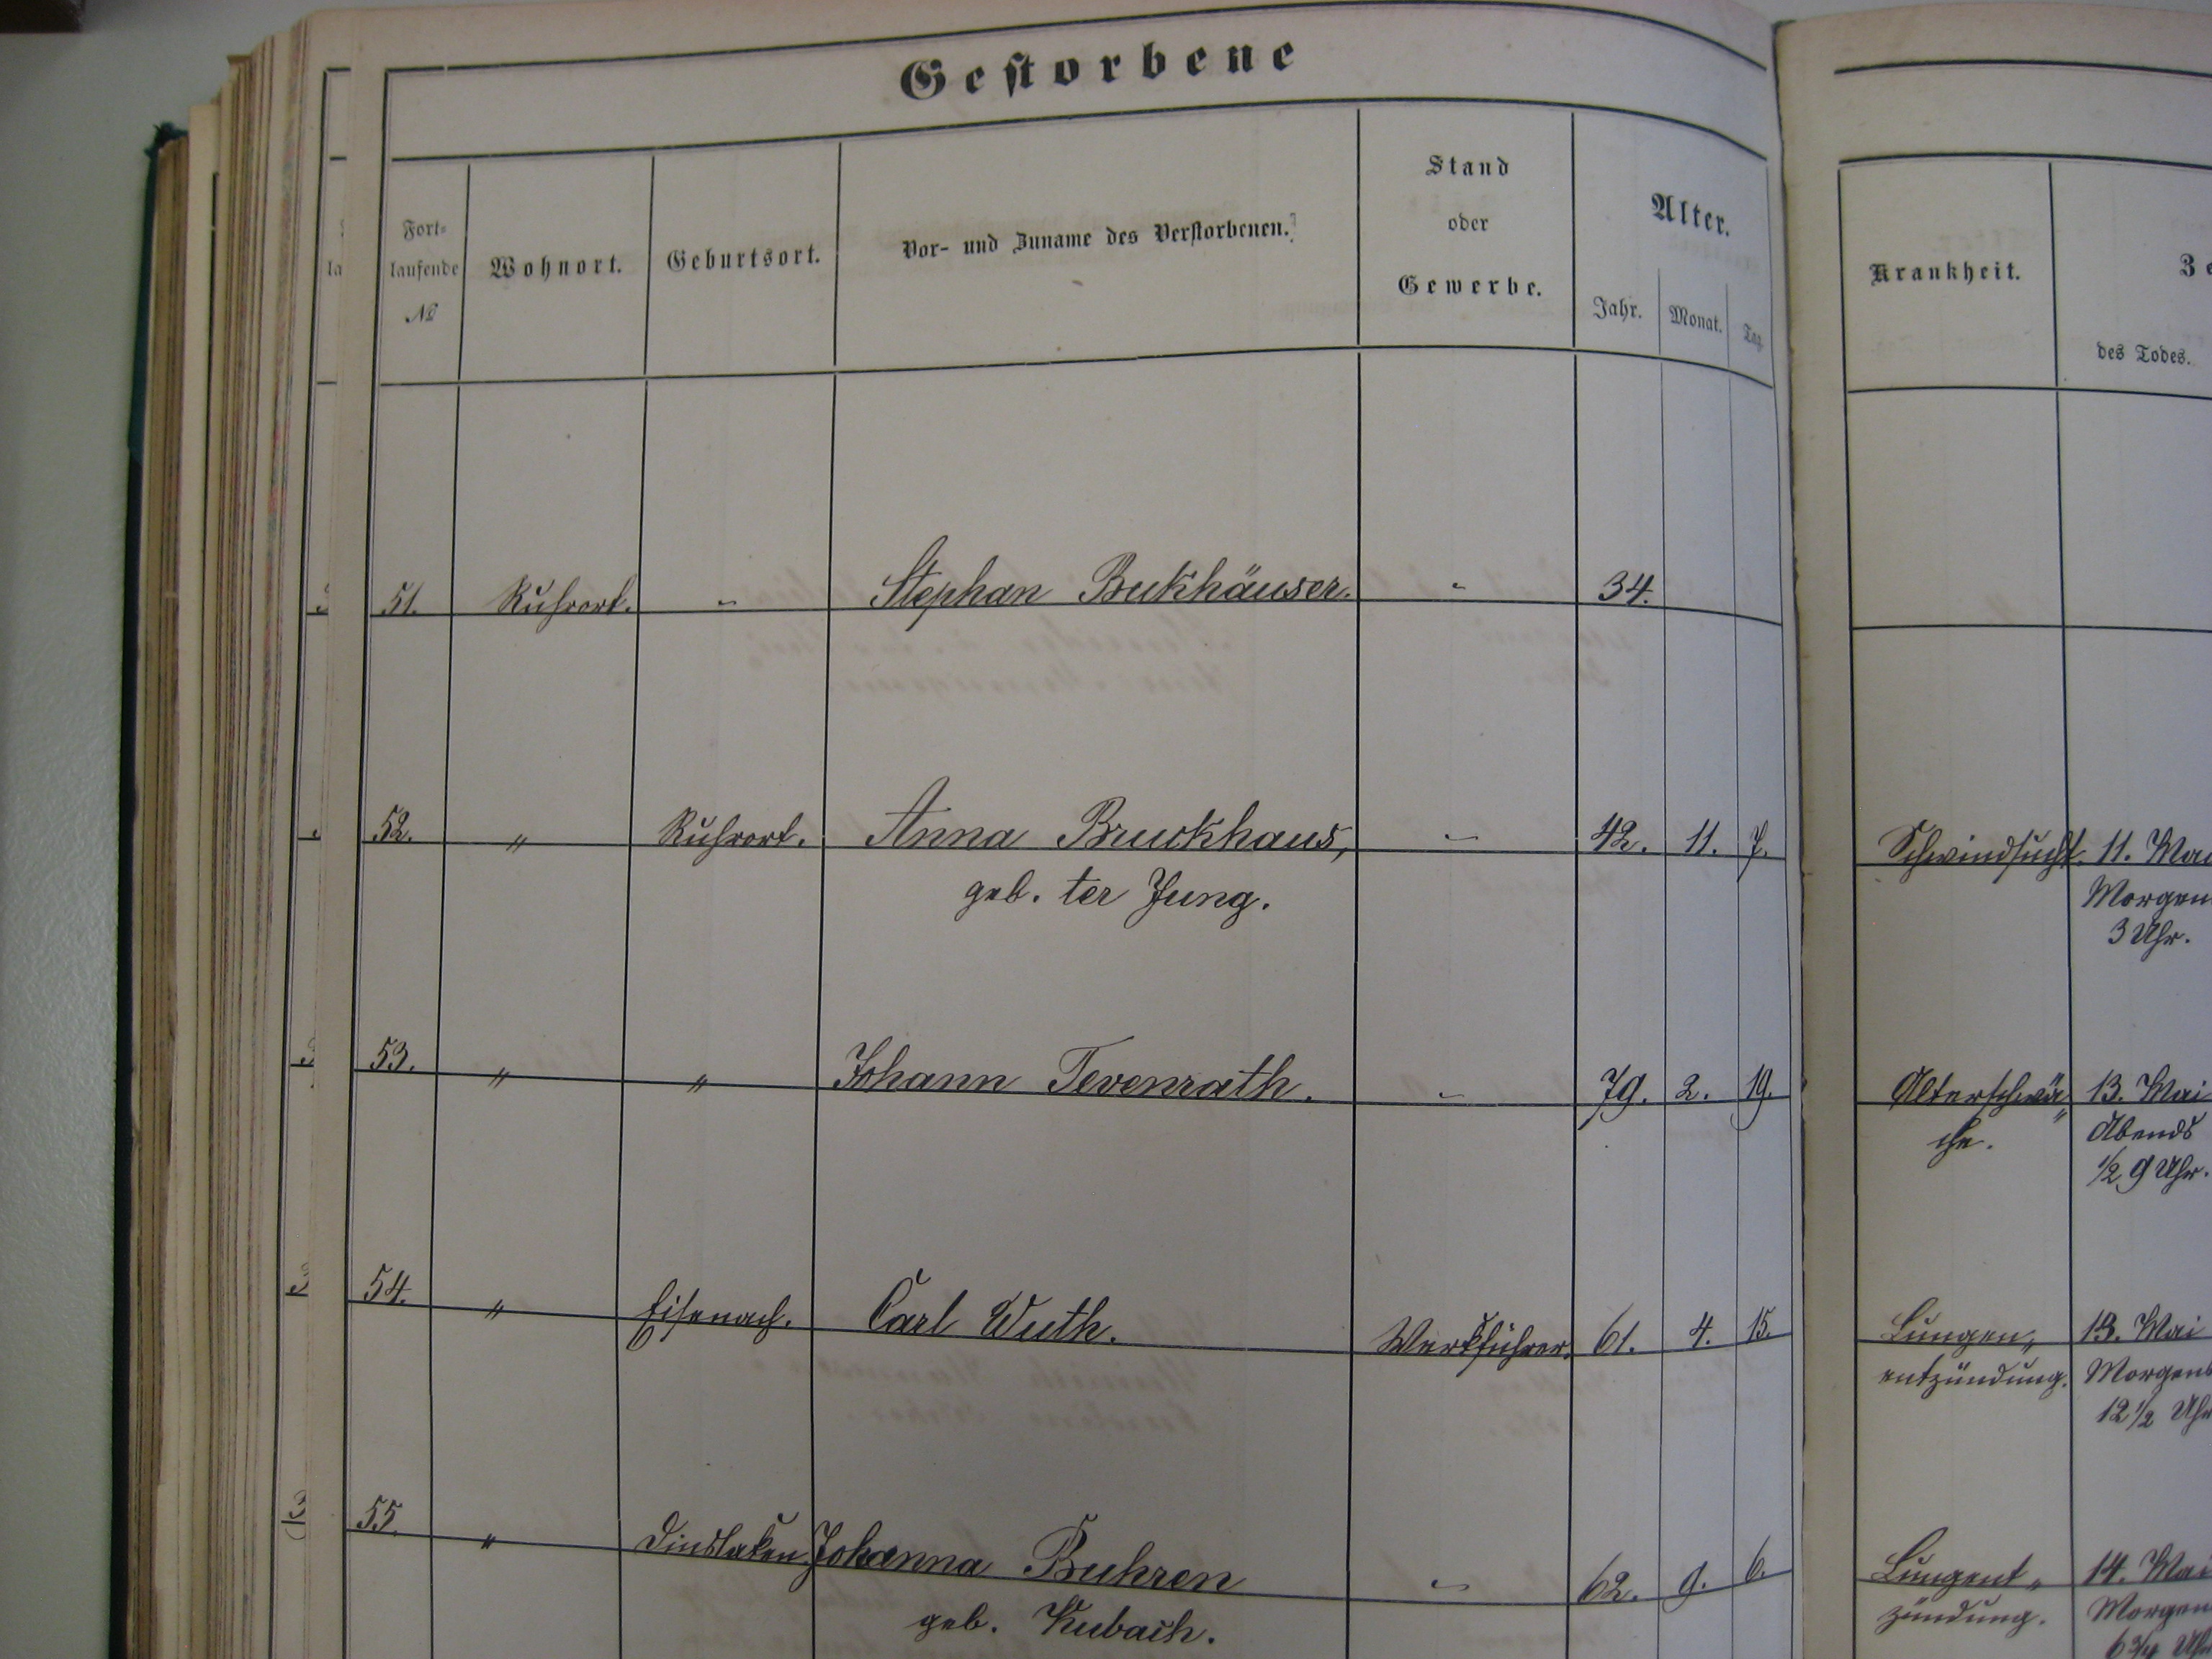 Gestorbene
Fort-
laufende
№
Wohnort.
Geburtsort.
Vor- und Zuname des Verstorbenen.
Stand
oder
Gewerbe.
Alter.
Jahr. Monat. Tag.
Krankheit.
des Todes.
51. Ruhrort. - Stephan Buckhäuser. - 34.
52. " Ruhrort. Anna Bruckhaus, - 42. 11. 7. Schwindsucht. 11. Mai
geb. ter Jung. Morgens
3 Uhr.
53. " " Johann Tevenrath. - 79. 2. 19. Altersschwä„ 13. Mai
che. Abends
½ 9 Uhr.
54. " Eisenach. Carl Wuth. Werkführer. 61. 4. 15. Lungen„ 13. Mai
entzündung. Morgens
12½ Uhr
55. " Dinslaken Johanna Buhren - 62. 9. 6. Lungent„ 14. Mai
geb. Kubach. zündung. Morgen
6¾ Uhr